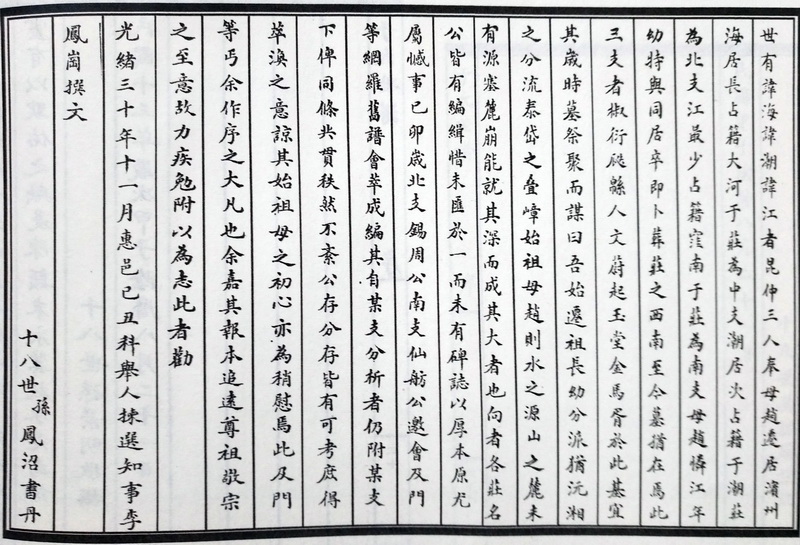 世有諱海諱湖諱江者昆仲三人奉母趙遷居濱州
海居長占籍大河于莊為中支湖居次占籍于湖莊
為北支江最少占籍窪南于莊為南支母趙憐江年
幼特與同居卒即卜葬莊之西南至今墓猶在焉此
三支者椒衍瓞緜人文蔚起玉堂金馬胥於此基宜
其歲時墓祭聚而謀曰吾始遷祖長幼分派猶沅湘
之分流泰岱之疊嶂始祖母趙則水之源山之麓未
有源塞麓崩能就其深而成其大者也向者各莊名
公皆有編緝惜未匯於一而未有碑誌以厚本原尤
屬憾事己卯歲北支錫周公南支仙舫公邀會及門
等網羅舊譜會萃成編其自某支分析者仍附某支
下俾同條共貫秩然不紊公存分存皆有可考庶得
萃渙之意諒其始祖母之初心亦為稍慰焉此及門
等丐余作序之大凡也余嘉其報本追遠尊祖敬宗
之至意故力疾勉附以為志此者勸
光緒三十年十一月惠邑己丑科舉人揀選知事李
鳳崗撰文
十八世孫鳳沼書丹